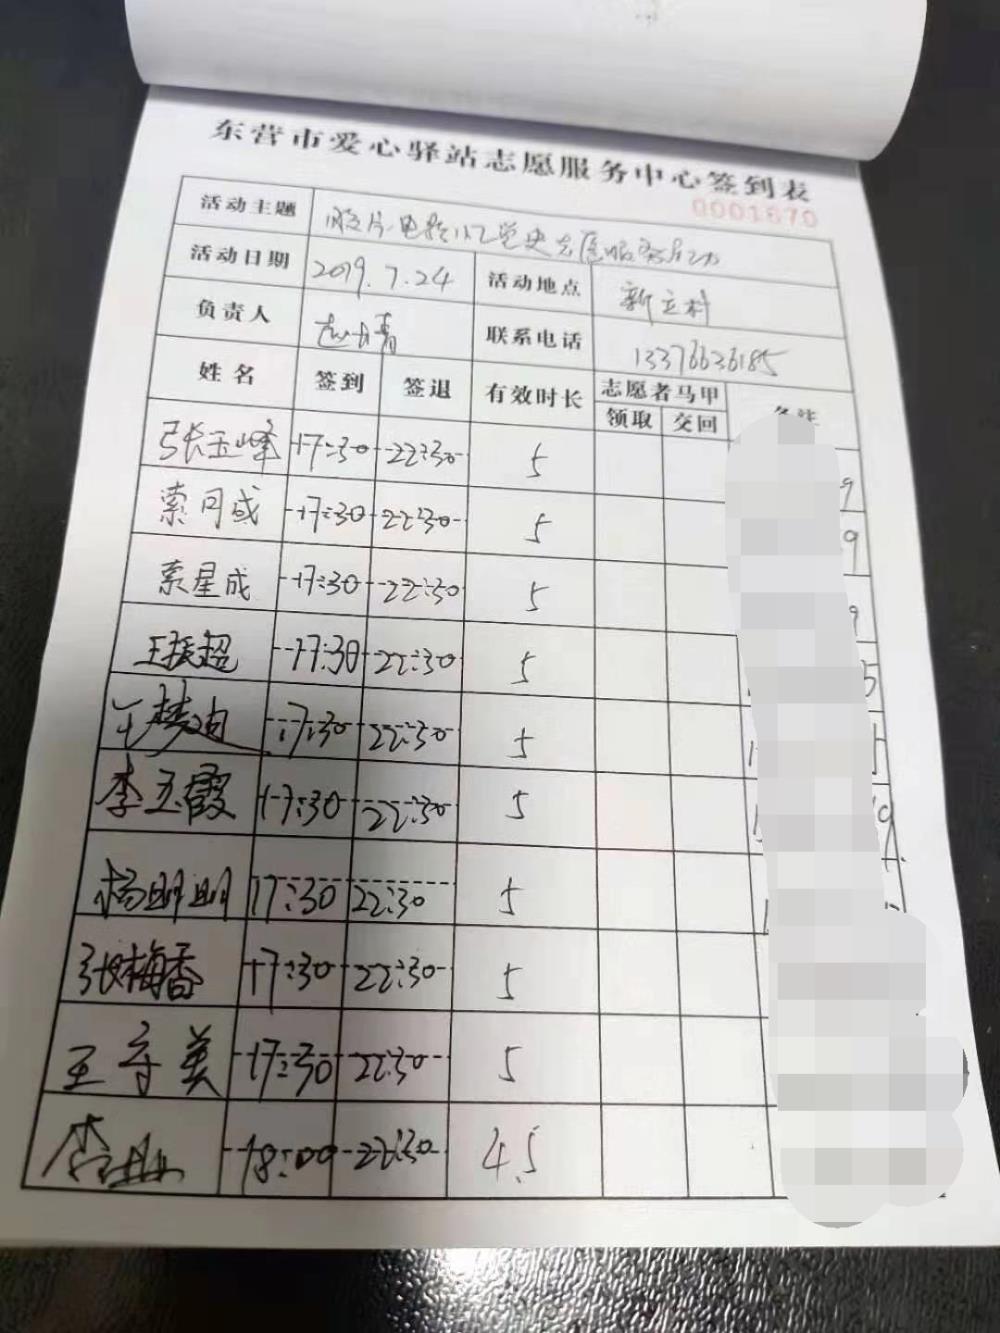 东营市爱心驿站志愿服务中心签到表
0001670
活动主题 胶片电影忆党史志愿服务活动
活动日期 2019.7.24 活动地点 新立村
负责人 联系电话 13376636185
姓名 签到 签退 有效时长 志愿者马甲 备注
领取 交回
张玉峰 17:30 22:30 5 9
索同成 17:30 22:30 5 9
索星成 17:30 22:30 5 9
王振超 17:30 22:30 5 5
17:30 22:30 5
李玉霞 17:30 22:30 5 9
杨明明 17:30 22:30 5
张梅香 17:30 22:30 5
王守美 17:30 22:30 5
18:00 22:30 4.5